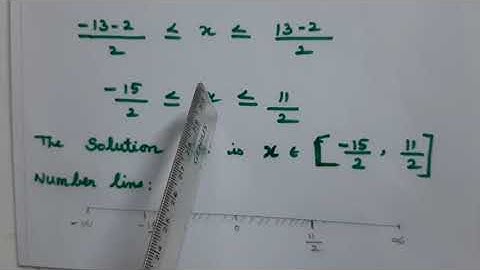 -13-2/2 ≤ x ≤ 13-2/2
-15/2 ≤ x ≤ 11/2
The Solution is x ∈ [-15/2, 11/2]
Number line:
-∞ 0 11/2 ∞